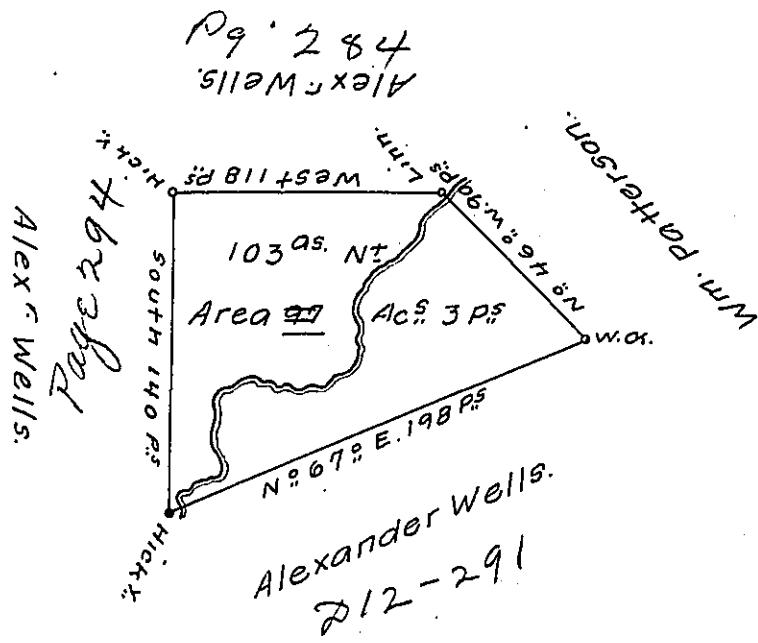 Pg. 284
Alexr. Wells.
Wm. Patterson.
Hicky.
West 118 Ps
Linn.
No 46o W. 99 Ps
W.O.
Alexr. Wells.
Page 294
South 140 Ps
103 as. Nt
Area 97 Acs 3 Ps
No 67o E. 198 Ps
Hicky.
Alexander Wells.
D12-291